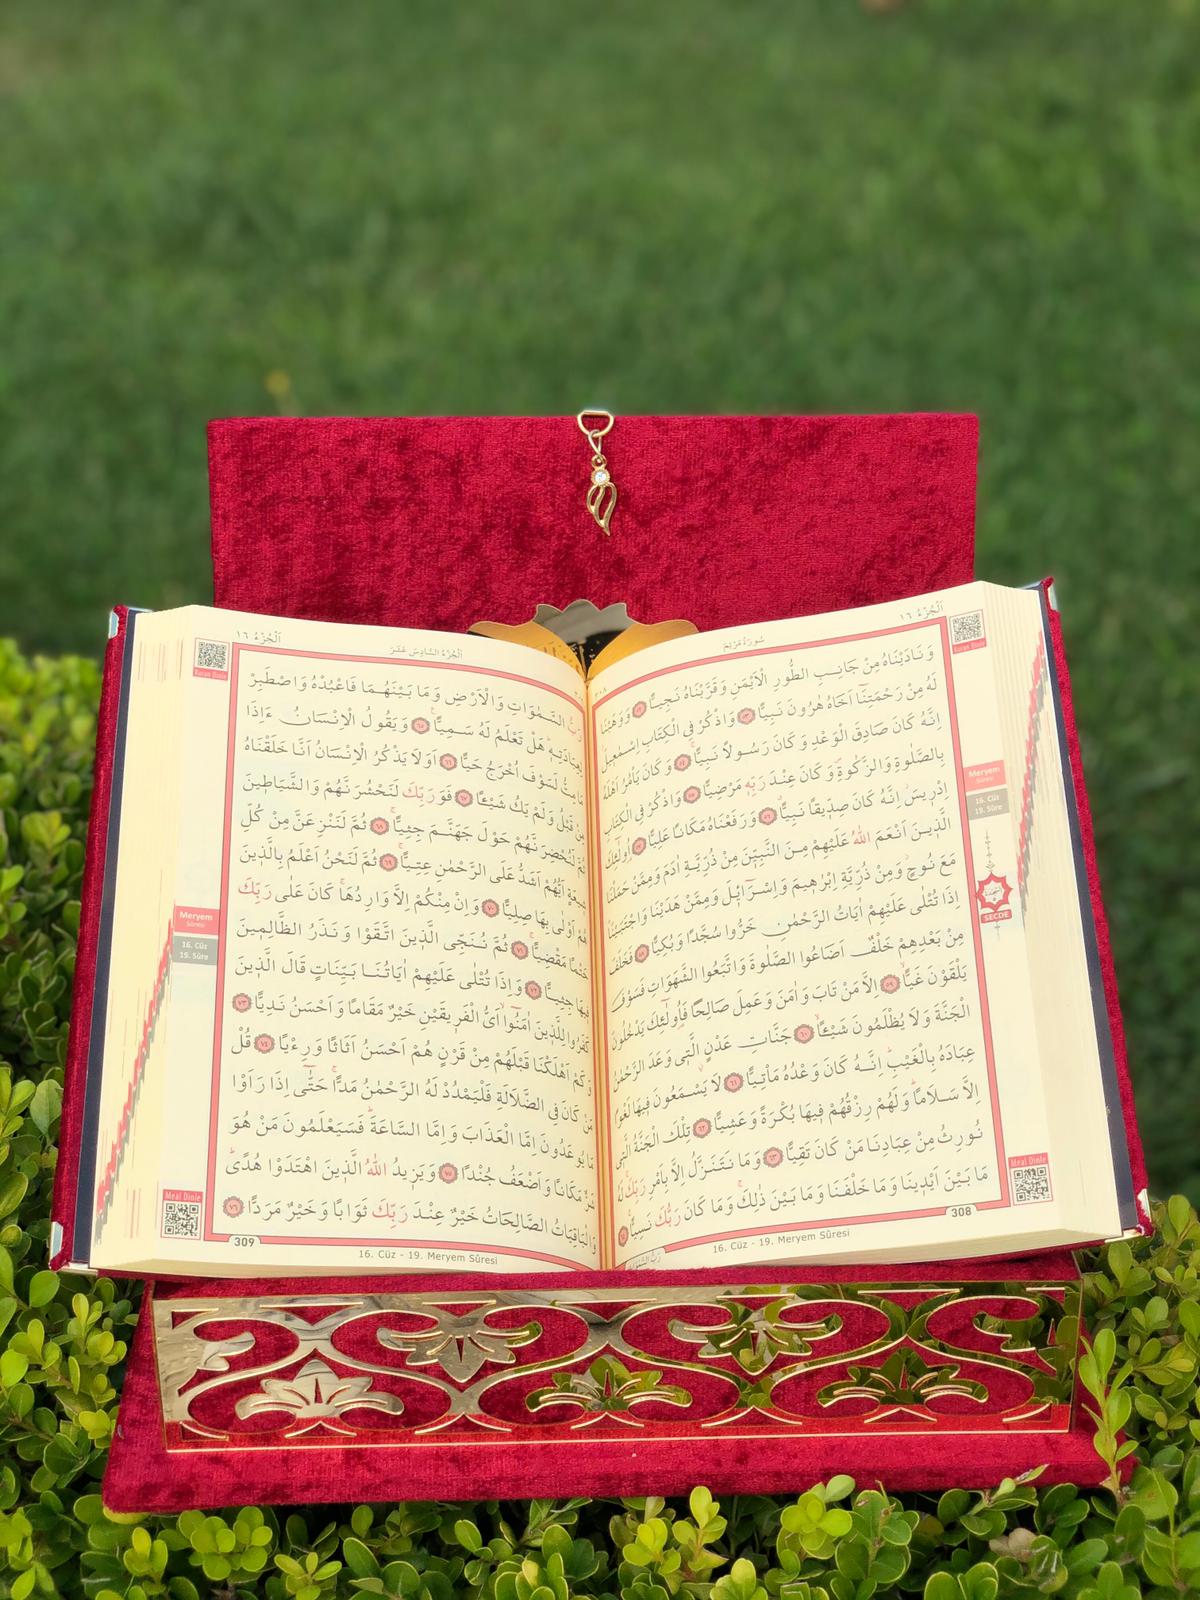 اَلْجُزْءُ ١٦
سُورَةُ مَرْيَمَ
٣٠٨
Kuran Dinle
وَنَادَيْنَاهُ مِنْ جَانِبِ الطُّورِ الْاَيْمَنِ وَقَرَّبْنَاهُ نَجِيًّا ﴿٥٢﴾ وَوَهَبْنَا
لَهُ مِنْ رَحْمَتِنَٓا اَخَاهُ هٰرُونَ نَبِيًّا ﴿٥٣﴾ وَاذْكُرْ فِي الْكِتَابِ اِسْمٰع۪يلَ
اِنَّهُ كَانَ صَادِقَ الْوَعْدِ وَكَانَ رَسُولًا نَبِيًّاۚ ﴿٥٤﴾ وَكَانَ يَأْمُرُ اَهْلَهُ
بِالصَّلٰوةِ وَالزَّكٰوةِۖ وَكَانَ عِنْدَ رَبِّه۪ مَرْضِيًّا ﴿٥٥﴾ وَاذْكُرْ فِي الْكِتَابِ
اِدْر۪يسَۘ اِنَّهُ كَانَ صِدّ۪يقًا نَبِيًّاۗ ﴿٥٦﴾ وَرَفَعْنَاهُ مَكَانًا عَلِيًّا ﴿٥٧﴾ اُو۬لٰٓئِكَ
الَّذ۪ينَ اَنْعَمَ اللّٰهُ عَلَيْهِمْ مِنَ النَّبِيّ۪نَ مِنْ ذُرِّيَّةِ اٰدَمَ وَمِمَّنْ حَمَلْنَا
مَعَ نُوحٍۘ وَمِنْ ذُرِّيَّةِ اِبْرٰه۪يمَ وَاِسْرَٓائ۪لَ وَمِمَّنْ هَدَيْنَا وَاجْتَبَيْنَا
اِذَا تُتْلٰى عَلَيْهِمْ اٰيَاتُ الرَّحْمٰنِ خَرُّوا سُجَّدًا وَبُكِيًّا ﴿٥٨﴾ فَخَلَفَ
مِنْ بَعْدِهِمْ خَلْفٌ اَضَاعُوا الصَّلٰوةَ وَاتَّبَعُوا الشَّهَوَاتِ فَسَوْفَ
يَلْقَوْنَ غَيًّاۙ ﴿٥٩﴾ اِلَّا مَنْ تَابَ وَاٰمَنَ وَعَمِلَ صَالِحًا فَاُو۬لٰٓئِكَ يَدْخُلُونَ
الْجَنَّةَ وَلَا يُظْلَمُونَ شَيْـًٔاۙ ﴿٦٠﴾ جَنَّاتِ عَدْنٍۨ الَّت۪ي وَعَدَ الرَّحْمٰنُ
عِبَادَهُ بِالْغَيْبِۜ اِنَّهُ كَانَ وَعْدُهُ مَأْتِيًّا ﴿٦١﴾ لَا يَسْمَعُونَ ف۪يهَا لَغْوًا
اِلَّا سَلَامًاۜ وَلَهُمْ رِزْقُهُمْ ف۪يهَا بُكْرَةً وَعَشِيًّا ﴿٦٢﴾ تِلْكَ الْجَنَّةُ الَّت۪ي
نُورِثُ مِنْ عِبَادِنَا مَنْ كَانَ تَقِيًّا ﴿٦٣﴾ وَمَا نَتَنَزَّلُ اِلَّا بِاَمْرِ رَبِّكَۚ لَهُ
مَا بَيْنَ اَيْد۪ينَا وَمَا خَلْفَنَا وَمَا بَيْنَ ذٰلِكَۚ وَمَا كَانَ رَبُّكَ نَسِيًّاۚ ﴿٦٤﴾
Meryem
Sûresi
16. Cüz
19. Sûre
SECDE
Meal Dinle
308
16. Cüz - 19. Meryem Sûresi
اَلْجُزْءُ السَّادِسَ عَشَرَ
اَلْجُزْءُ ١٦
Kuran Dinle
رَبُّ السَّمٰوَاتِ وَالْاَرْضِ وَمَا بَيْنَهُمَا فَاعْبُدْهُ وَاصْطَبِرْ
لِعِبَادَتِه۪ۜ هَلْ تَعْلَمُ لَهُ سَمِيًّا۟ ﴿٦٥﴾ وَيَقُولُ الْاِنْسَانُ ءَاِذَا
مَا مِتُّ لَسَوْفَ اُخْرَجُ حَيًّا ﴿٦٦﴾ اَوَلَا يَذْكُرُ الْاِنْسَانُ اَنَّا خَلَقْنَاهُ
مِنْ قَبْلُ وَلَمْ يَكُ شَيْـًٔا ﴿٦٧﴾ فَوَرَبِّكَ لَنَحْشُرَنَّهُمْ وَالشَّيَاط۪ينَ
ثُمَّ لَنُحْضِرَنَّهُمْ حَوْلَ جَهَنَّمَ جِثِيًّاۚ ﴿٦٨﴾ ثُمَّ لَنَنْزِعَنَّ مِنْ كُلِّ
ش۪يعَةٍ اَيُّهُمْ اَشَدُّ عَلَى الرَّحْمٰنِ عِتِيًّاۚ ﴿٦٩﴾ ثُمَّ لَنَحْنُ اَعْلَمُ بِالَّذ۪ينَ
هُمْ اَوْلٰى بِهَا صِلِيًّا ﴿٧٠﴾ وَاِنْ مِنْكُمْ اِلَّا وَارِدُهَاۚ كَانَ عَلٰى رَبِّكَ
حَتْمًا مَقْضِيًّاۚ ﴿٧١﴾ ثُمَّ نُنَجِّي الَّذ۪ينَ اتَّقَوْا وَنَذَرُ الظَّالِم۪ينَ
ف۪يهَا جِثِيًّا ﴿٧٢﴾ وَاِذَا تُتْلٰى عَلَيْهِمْ اٰيَاتُنَا بَيِّنَاتٍ قَالَ الَّذ۪ينَ
كَفَرُوا لِلَّذ۪ينَ اٰمَنُٓواۙ اَيُّ الْفَر۪يقَيْنِ خَيْرٌ مَقَامًا وَاَحْسَنُ نَدِيًّا ﴿٧٣﴾
وَكَمْ اَهْلَكْنَا قَبْلَهُمْ مِنْ قَرْنٍ هُمْ اَحْسَنُ اَثَاثًا وَرِءْيًا ﴿٧٤﴾ قُلْ
مَنْ كَانَ فِي الضَّلَالَةِ فَلْيَمْدُدْ لَهُ الرَّحْمٰنُ مَدًّاۚ حَتّٰٓى اِذَا رَاَوْا
مَا يُوعَدُونَ اِمَّا الْعَذَابَ وَاِمَّا السَّاعَةَۜ فَسَيَعْلَمُونَ مَنْ هُوَ
شَرٌّ مَكَانًا وَاَضْعَفُ جُنْدًا ﴿٧٥﴾ وَيَز۪يدُ اللّٰهُ الَّذ۪ينَ اهْتَدَوْا هُدًىۜ
وَالْبَاقِيَاتُ الصَّالِحَاتُ خَيْرٌ عِنْدَ رَبِّكَ ثَوَابًا وَخَيْرٌ مَرَدًّا ﴿٧٦﴾
Meryem
Sûresi
16. Cüz
19. Sûre
Meal Dinle
309
16. Cüz - 19. Meryem Sûresi